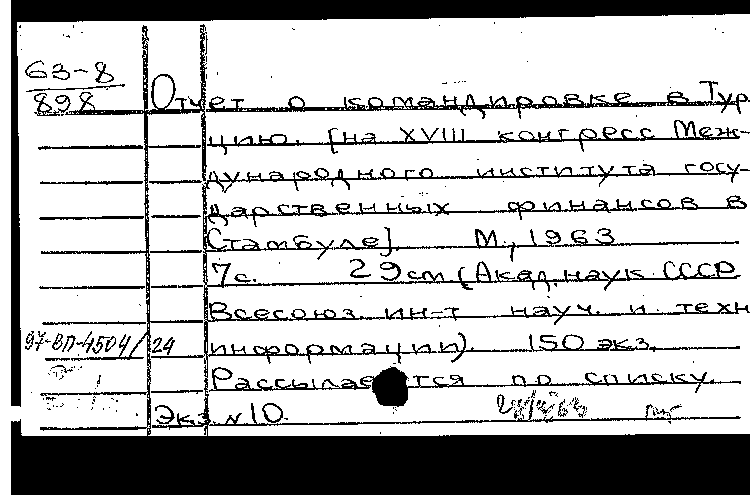 63-8
898
Отчет о командировке в Тур
цию. [на XVIII конгресс Меж-
дународного института госу-
дарственных финансов в
Стамбуле]. М., 1963
7с. 29см (Акад. наук СССР
Всесоюз. ин-т науч. и техн
97-ВП-4504/24 информации). 150 экз.
Рассылается по списку.
Экз №10.